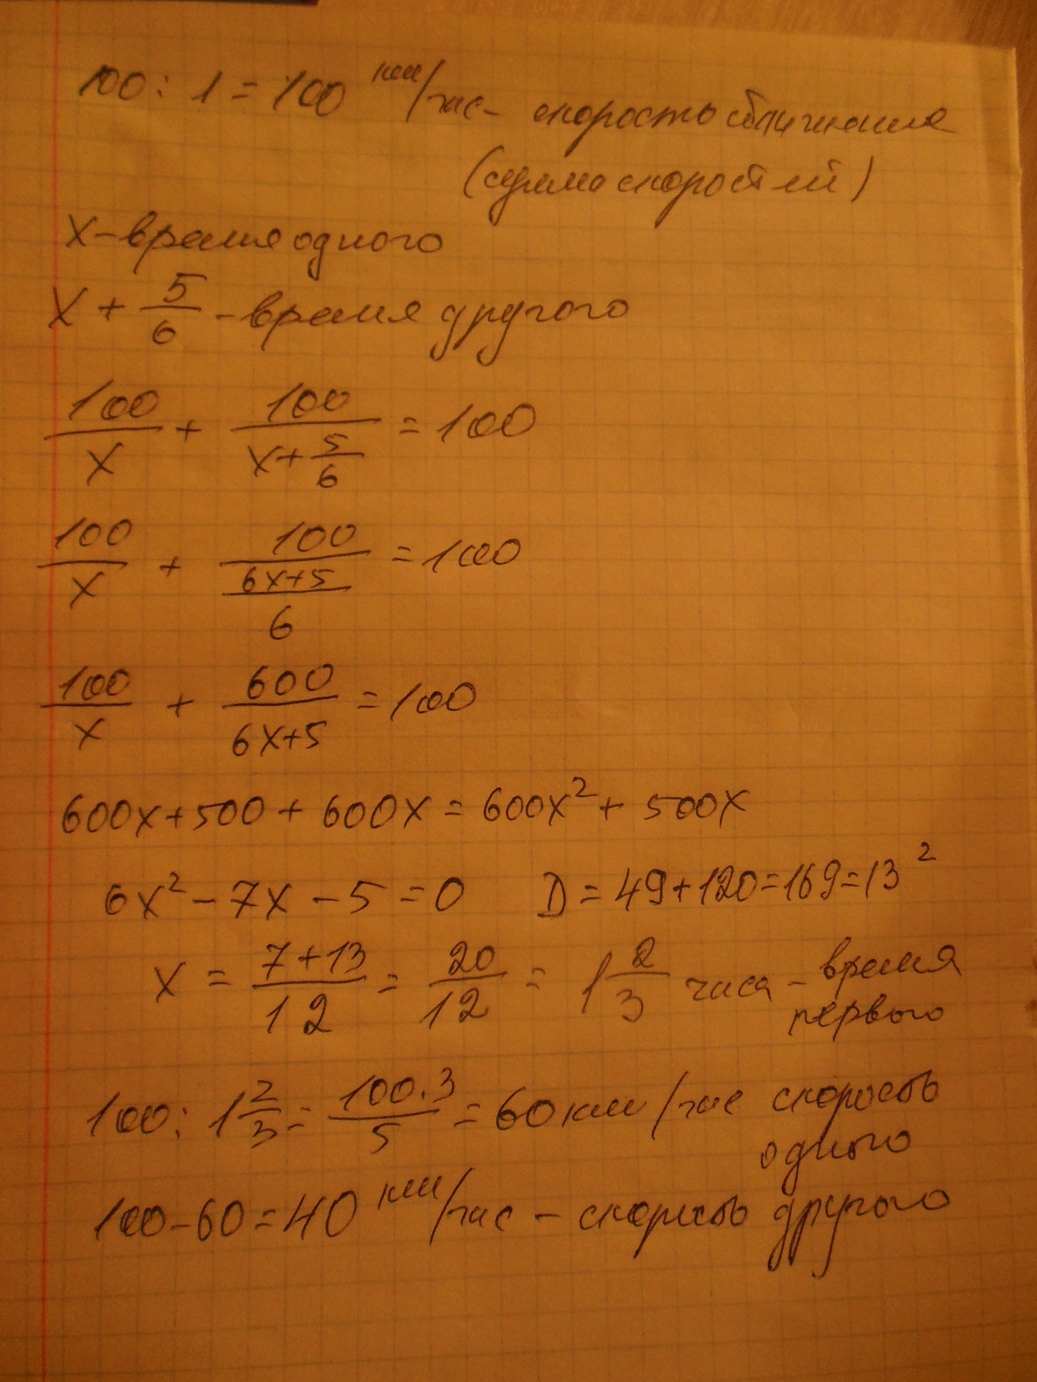 100 : 1 = 100 км/час - скорость сближения
(сумма скоростей)
x - время одного
x + 5/6 - время другого
100/x + 100/(x + 5/6) = 100
100/x + 100/((6x+5)/6) = 100
100/x + 600/(6x+5) = 100
600x + 500 + 600x = 600x² + 500x
6x² - 7x - 5 = 0 D = 49 + 120 = 169 = 13²
x = (7+13)/12 = 20/12 = 1 2/3 часа - время
первого
100 : 1 2/3 = (100.3)/5 = 60 км/час скорость
одного
100 - 60 = 40 км/час - скорость другого